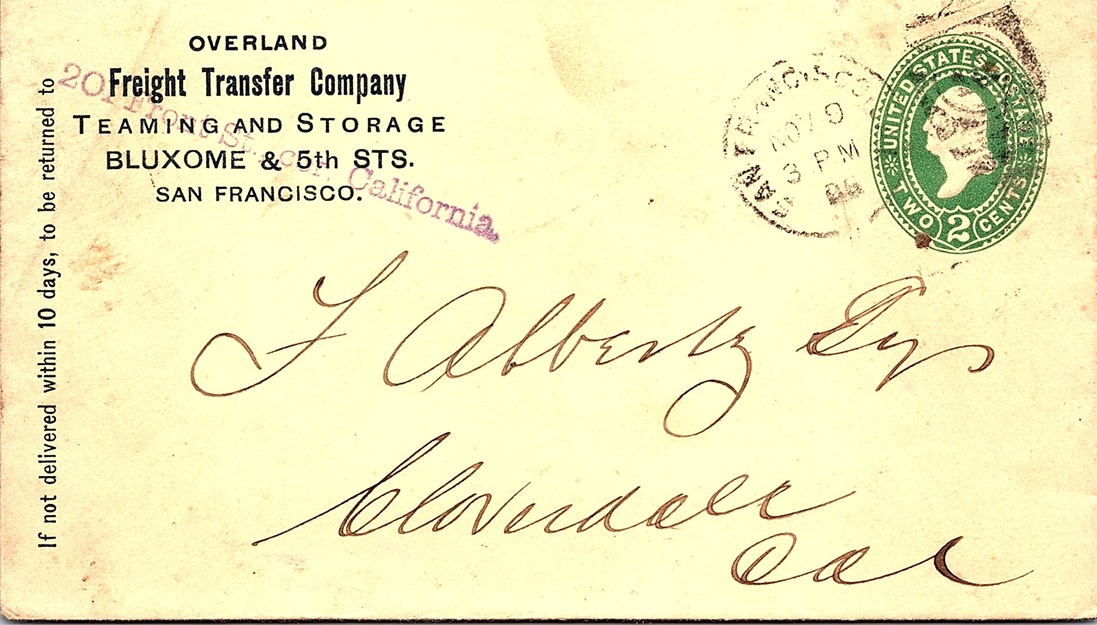 OVERLAND
Freight Transfer Company
TEAMING AND STORAGE
BLUXOME & 5th STS.
SAN FRANCISCO.
201 Front St., cor. California.
If not delivered within 10 days, to be returned to
SAN FRANCISCO
NOV 9
3 PM
UNITED STATES POSTAGE
TWO 2 CENTS
F Albertz Esq
Cloverdale
Cal